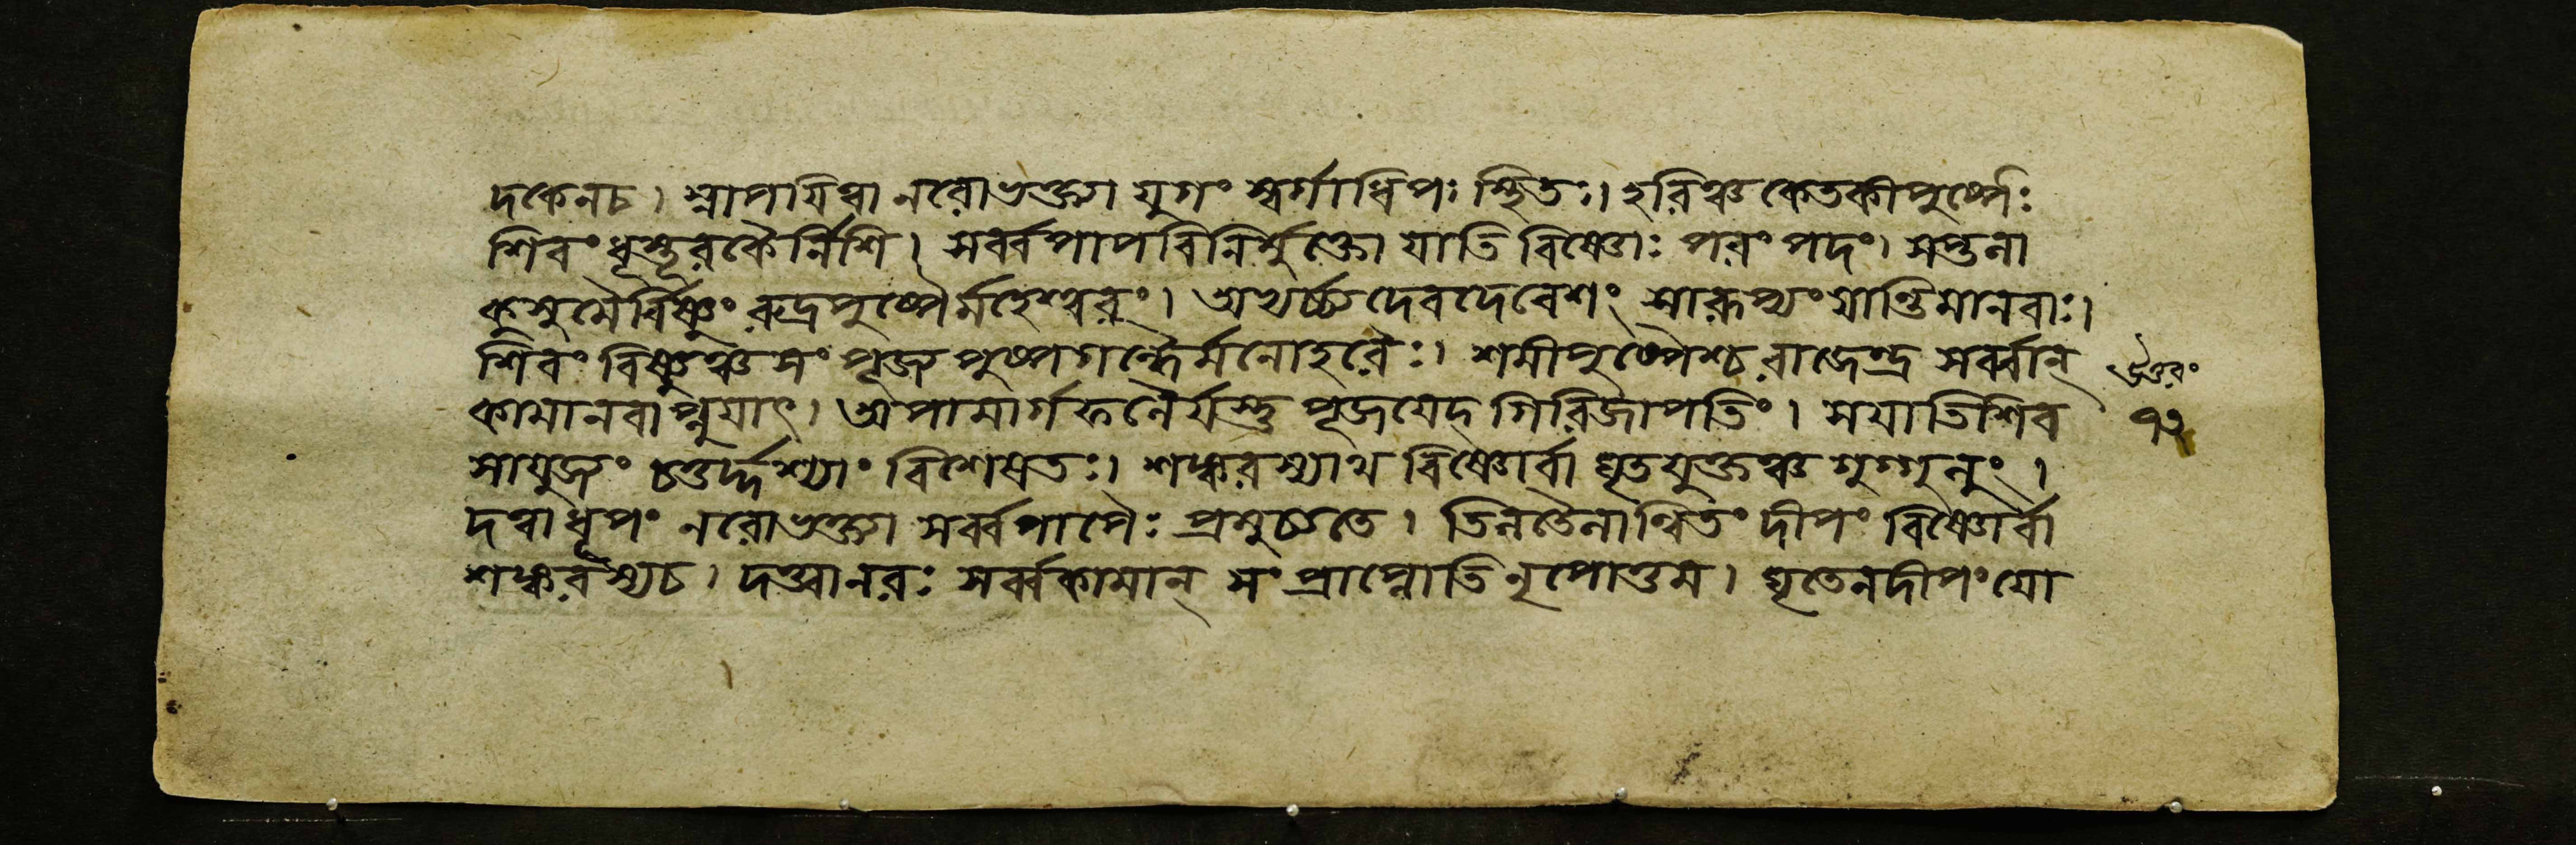 দকেনচ। স্নাপযিত্বা নরোভক্ত্যা যুগং স্বর্গাধিপঃ স্থিতঃ। হরিঞ্চ কেতকীপুষ্পৈঃ
শিবং ধূস্তূরকৈর্নিশি। সর্ব্বপাপবিনির্মুক্তো যাতি বিষ্ণোঃ পরং পদং। সপ্তনা
কুসুমৈর্বিষ্ণুং রুদ্রপুষ্পৈর্মহেশ্বরং। অভ্যর্চ্চ্য দেবদেবেশং সারূপ্যং যান্তি মানবাঃ।
শিবং বিষ্ণুঞ্চ সং পূজ্য পুষ্পগন্ধৈর্মনোহরৈঃ। শমীপুষ্পৈশ্চ রাজেন্দ্র সর্ব্বান্
কামানবাপ্নুযাৎ। অপামার্গফলৈর্যস্তু পূজযেদ্ গিরিজাপতিং। স যাতি শিব
সাযুজ্যং চতুর্দ্দশ্যাং বিশেষতঃ। শঙ্করস্যাথ বিষ্ণোর্বা ঘৃতযুক্তঞ্চ গুগ্গুলুং।
দত্বা ধূপং নরোভক্ত্যা সর্ব্বপাপৈঃ প্রমুচ্যতে। তিলতৈলান্বিতং দীপং বিষ্ণোর্বা
শঙ্করস্যচ। দত্ত্বা নরঃ সর্ব্বকামান্ সং প্রাপ্নোতি নৃপোত্তম। ঘৃতেন দীপং যো